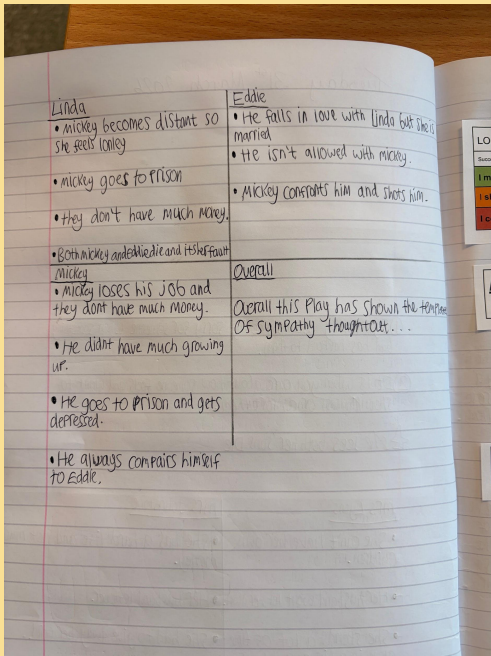 Linda
• Mickey becomes distant so
she feels lonley
• Mickey goes to Prison
• they don't have much Money.
• Both mickey and eddie die and its her fault
Eddie
• He falls in love with Linda but she is
married
• He isn't allowed with mickey.
• Mickey confronts him and shots him.
Mickey
• Mickey loses his job and
they dont have much money.
• He didnt have much growing
up.
• He goes to prison and gets
depressed.
• He always compairs himself
to Eddie.
Overall
Overall this Play has shown the
Of sympathy thoughtout...
LO
Succ
I m
I c